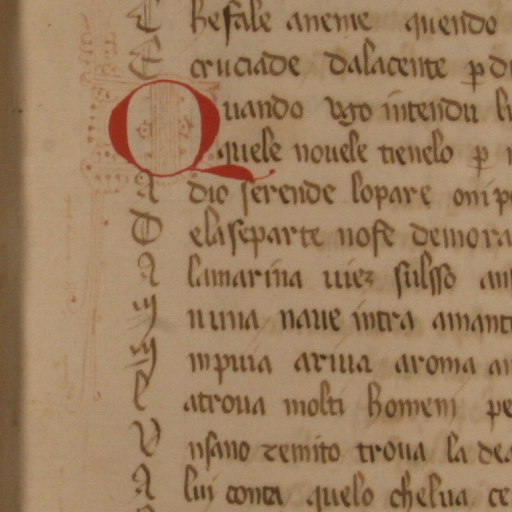 C he fale aneme quendo
E cruciade dalacente
Quando vgo intendu
quele nouele tienelo p
A dio serende lopare
E la separte no fe demora
A lamarina uiez sulsso
M nuna naue intra amant
M mpuia ariua aroma
C atroua molti homem pe
V nsano zemito troua la
A lui conta quelo chelua ce